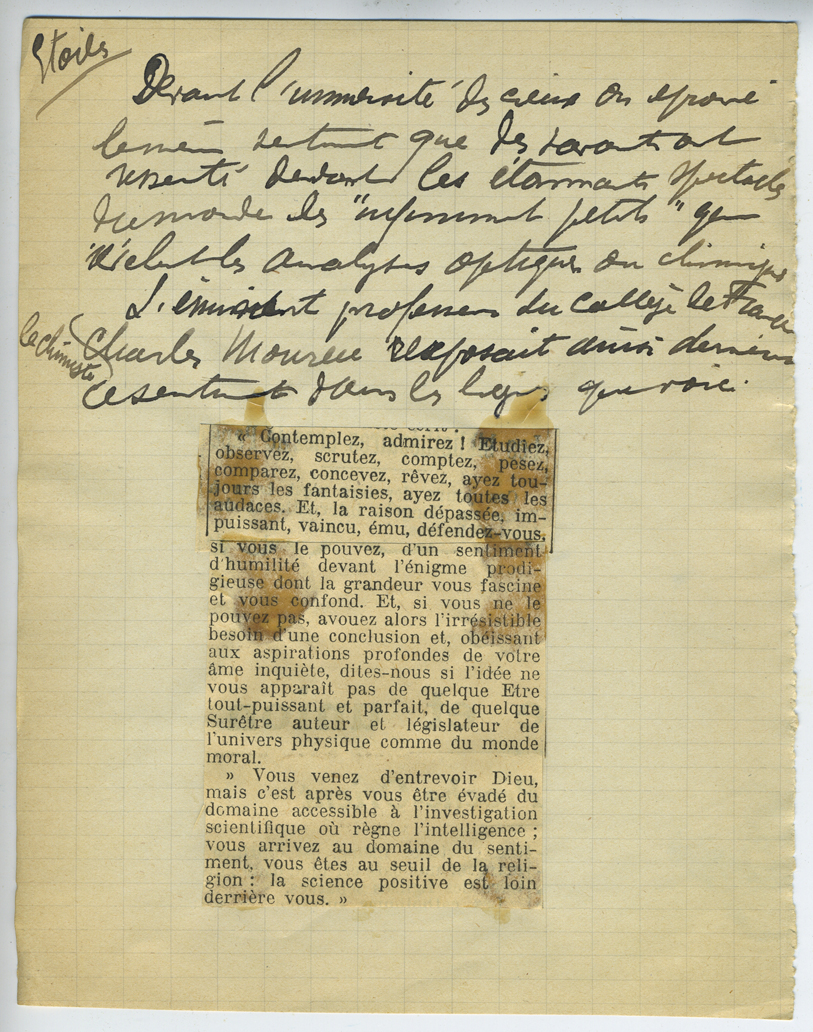 Etoiles
Devant l'immensité des cieux on éprouve
le même sentiment que des savants ont
ressenti devant les étonnants spectacles
du monde des "infiniment petits" que
révèlent les analyses optiques ou chimiques
L'éminent professeur du collège de France
le chimiste
Charles Moureu exposait ainsi
ce sentiment dans les lignes que voici.
« Contemplez, admirez ! Etudiez,
observez, scrutez, comptez, pesez,
comparez, concevez, rêvez, ayez tou-
jours les fantaisies, ayez toutes les
audaces. Et, la raison dépassée, im-
puissant, vaincu, ému, défendez-vous,
si vous le pouvez, d'un sentiment
d'humilité devant l'énigme prodi-
gieuse dont la grandeur vous fascine
et vous confond. Et, si vous ne le
pouvez pas, avouez alors l'irrésistible
besoin d'une conclusion et, obéissant
aux aspirations profondes de votre
âme inquiète, dites-nous si l'idée ne
vous apparaît pas de quelque Etre
tout-puissant et parfait, de quelque
Surêtre auteur et législateur de
l'univers physique comme du monde
moral.
» Vous venez d'entrevoir Dieu,
mais c'est après vous être évadé du
domaine accessible à l'investigation
scientifique où règne l'intelligence ;
vous arrivez au domaine du senti-
ment, vous êtes au seuil de la reli-
gion : la science positive est loin
derrière vous. »